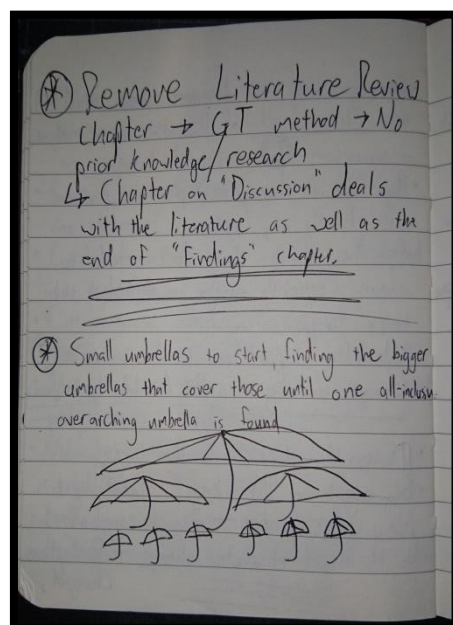 * Remove Literature Review
Chapter → GT method → No
prior knowledge/research
↳ Chapter on "Discussion" deals
with the literature as well as the
end of "Findings" chapter.
* Small umbrellas to start, finding the bigger
umbrellas that cover those until one all-inclusiv
overarching umbrella is found